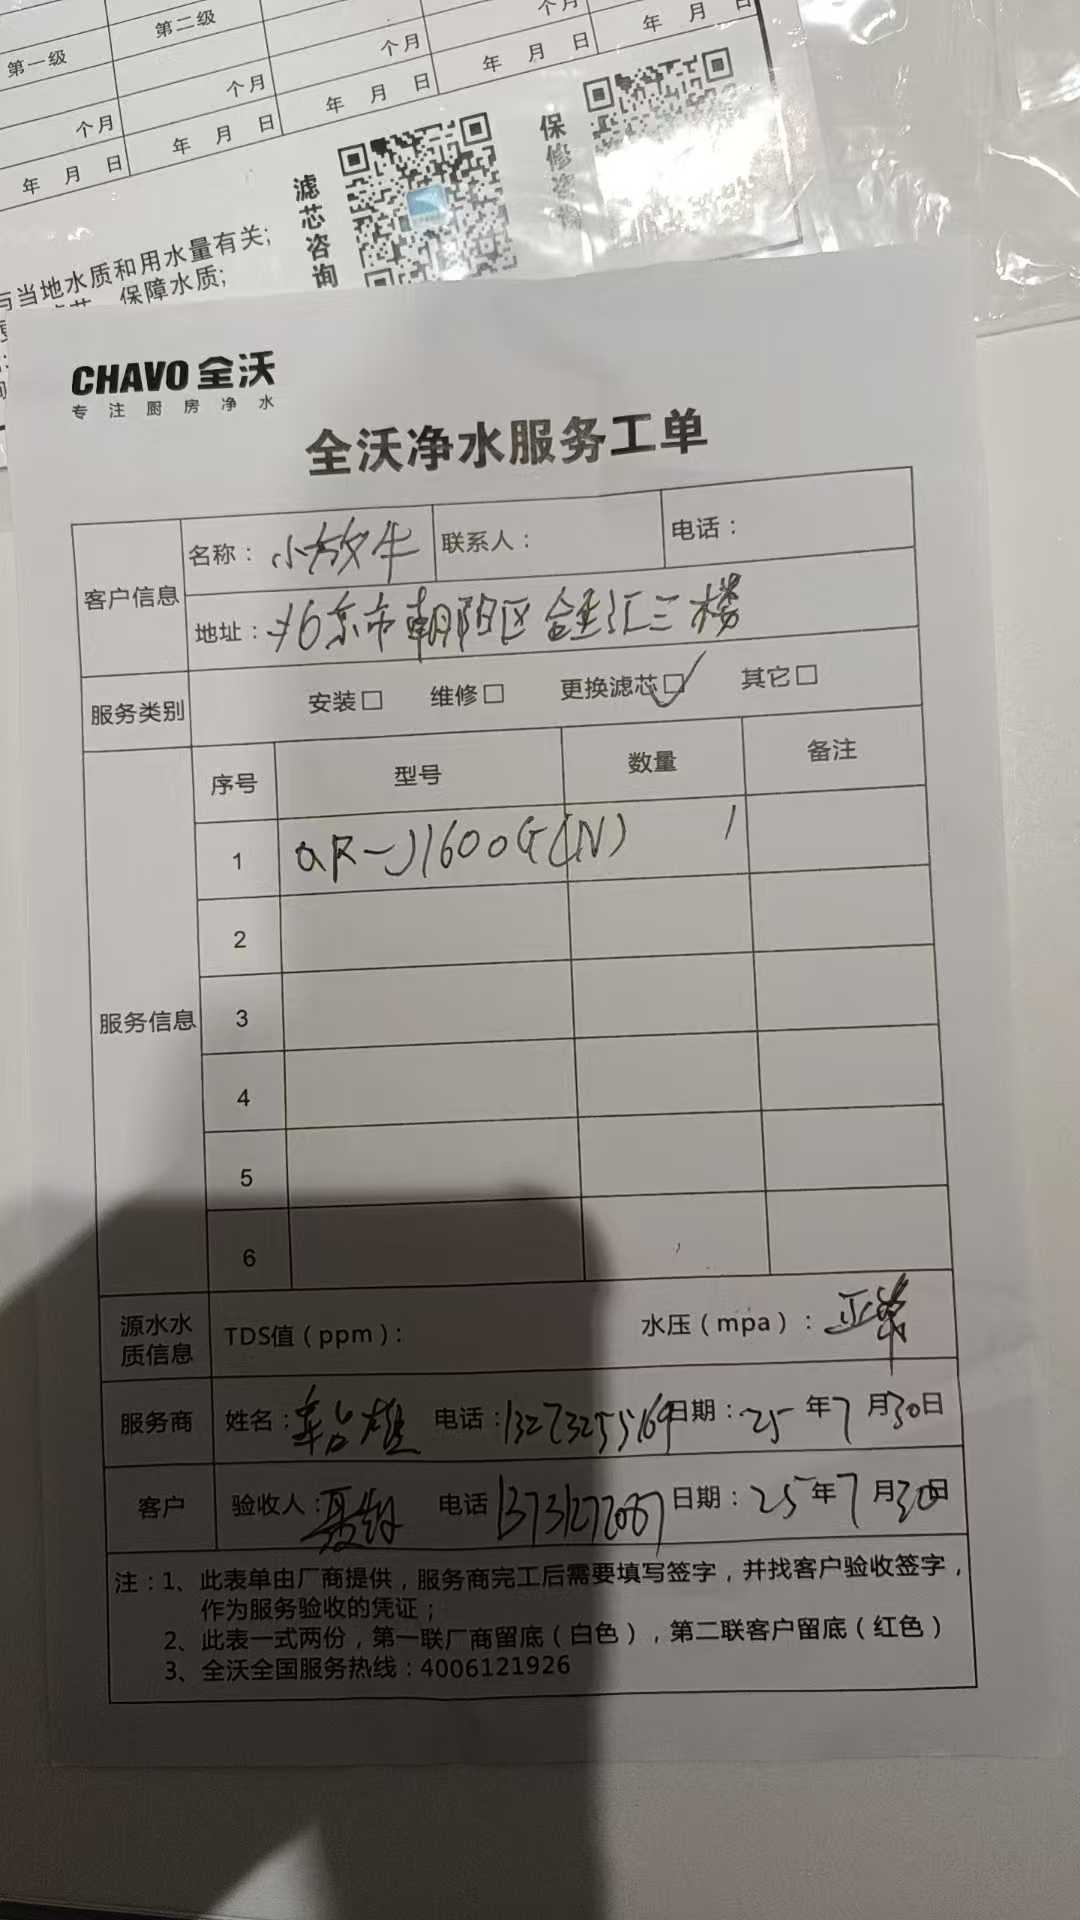 第一级 第二级
个月 个月 个月 个月
年 月 日 年 月 日 年 月 日 年 月 日 年 月 日
滤芯咨询
保修咨
与当地水质和用水量有关;
保障水质;
CHAVO 全沃
专注厨房净水
全沃净水服务工单
客户信息 名称：小放牛 联系人： 电话：
地址：北京市朝阳区金汇三楼
服务类别 安装□ 维修□ 更换滤芯□✓ 其它□
服务信息 序号 型号 数量 备注
1 QR-J1600G(N) 1
2
3
4
5
6
源水水质信息 TDS值（ppm）： 水压（mpa）：正常
服务商 姓名： 电话：13273255169 日期：25年7月30日
客户 验收人： 电话 日期：25年7月30日
注：1、此表单由厂商提供，服务商完工后需要填写签字，并找客户验收签字，
作为服务验收的凭证；
2、此表一式两份，第一联厂商留底（白色），第二联客户留底（红色）
3、全沃全国服务热线：4006121926